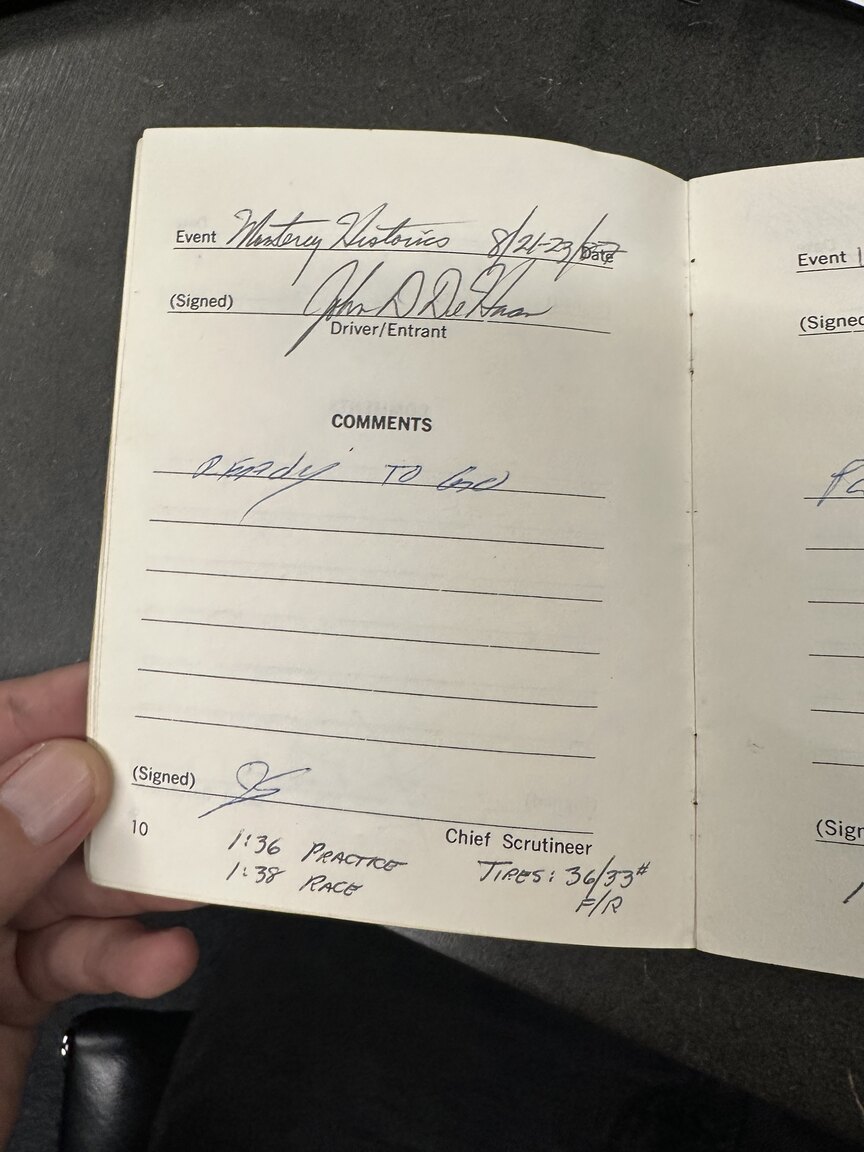 Event Monterey Historics 8/21-23/87 Date
(Signed) John D DeHaan
Driver/Entrant
COMMENTS
READY TO GO
(Signed)
10
Chief Scrutineer
1:36 PRACTICE
1:38 RACE
TIRES: 36/33#
F/R
Event
(Signed
(Sign